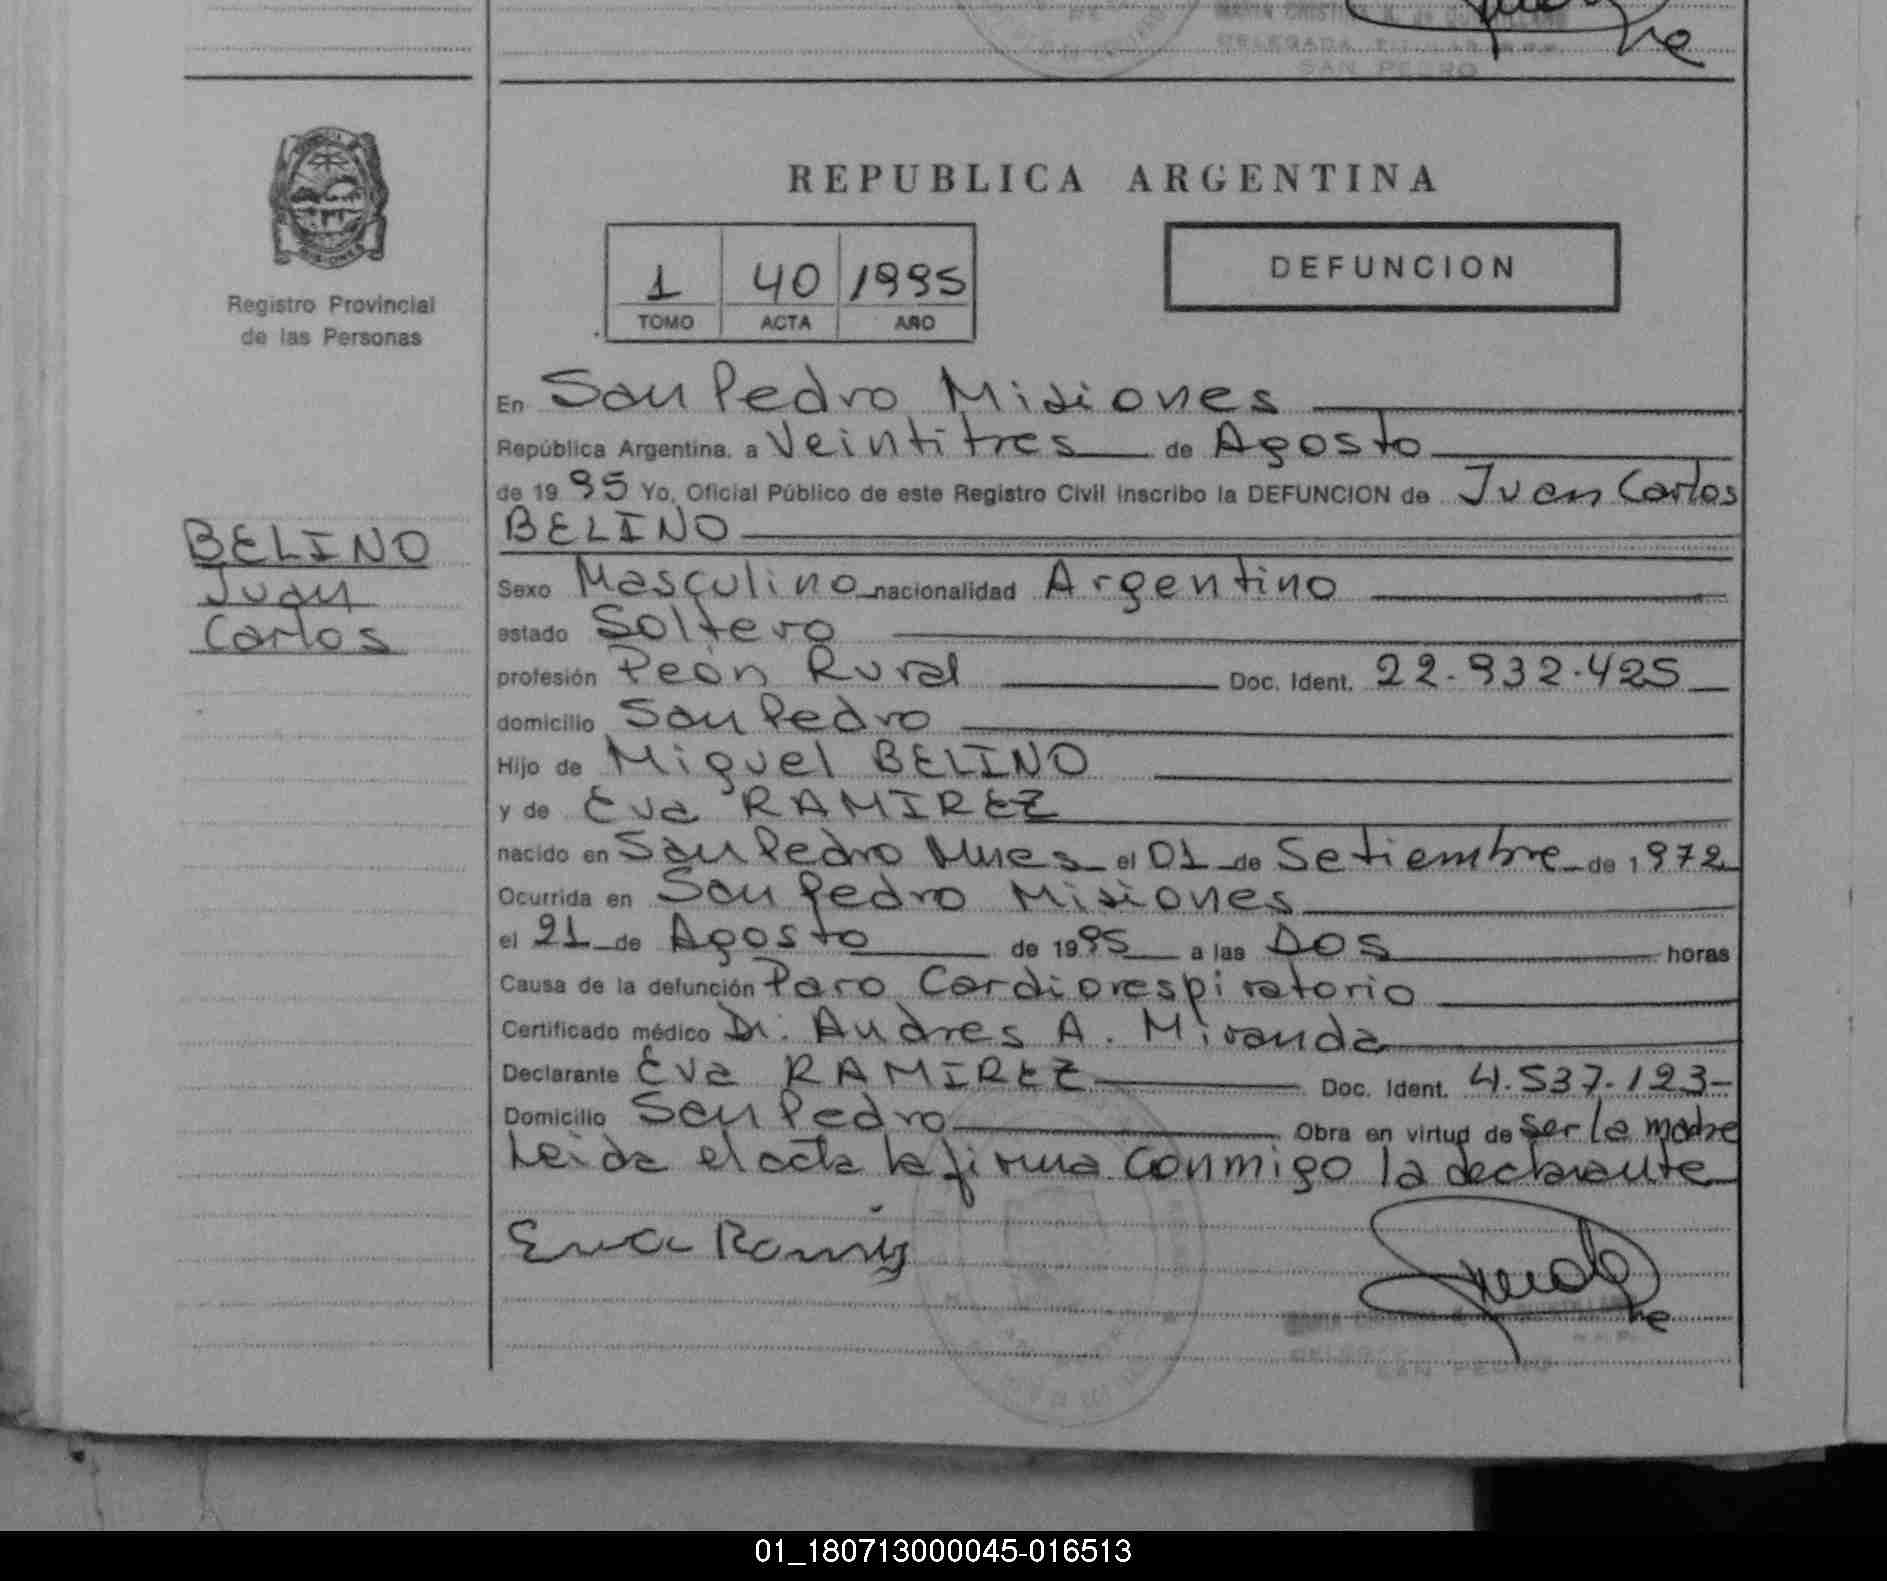 DELEGADA TITULAR
SAN PEDRO
Registro Provincial
de las Personas
REPUBLICA ARGENTINA
DEFUNCION
1 40 1995
TOMO ACTA AÑO
En San Pedro Misiones
República Argentina, a Veintitres de Agosto
de 1995 Yo, Oficial Público de este Registro Civil inscribo la DEFUNCION de Juan Carlos
BELINO
BELINO
Juan
Carlos
Sexo Masculino nacionalidad Argentino
estado Soltero
profesión Peón Rural Doc. Ident. 22.932.425
domicilio San Pedro
Hijo de Miguel BELINO
y de Eva RAMIREZ
nacido en San Pedro Mnes el 01 de Setiembre de 1972
Ocurrida en San Pedro Misiones
el 21 de Agosto de 1995 a las Dos horas
Causa de la defunción Paro Cardiorespiratorio
Certificado médico Dr. Andres A. Miranda
Declarante Eva RAMIREZ Doc. Ident. 4.537.123
Domicilio San Pedro Obra en virtud de ser la madre
Leida el acta la firma conmigo la declarante
Eva Ramirez
SAN PEDRO
01_180713000045-016513